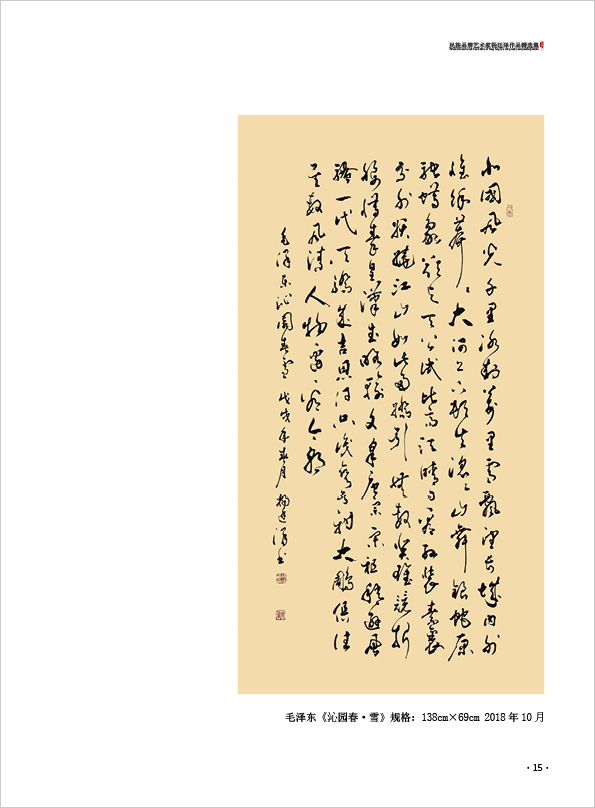 北國風光千里冰封萬里雪飄望長城内外
惟餘莽々大河上下顿失滔々山舞銀蛇原
馳蜡象欲与天公試比高須晴日看红裝素裹
分外妖娆江山如此多嬌引無数英雄竞折
腰惜秦皇漢武略輸文采唐宗宋祖稍遜風
騷一代天驕成吉思汗只识弯弓射大雕俱往
矣数風流人物還看今朝
毛泽东沁園春雪 戊戌年秋月
毛泽东《沁园春·雪》规格：138cm×69cm 2018年10月
·15·